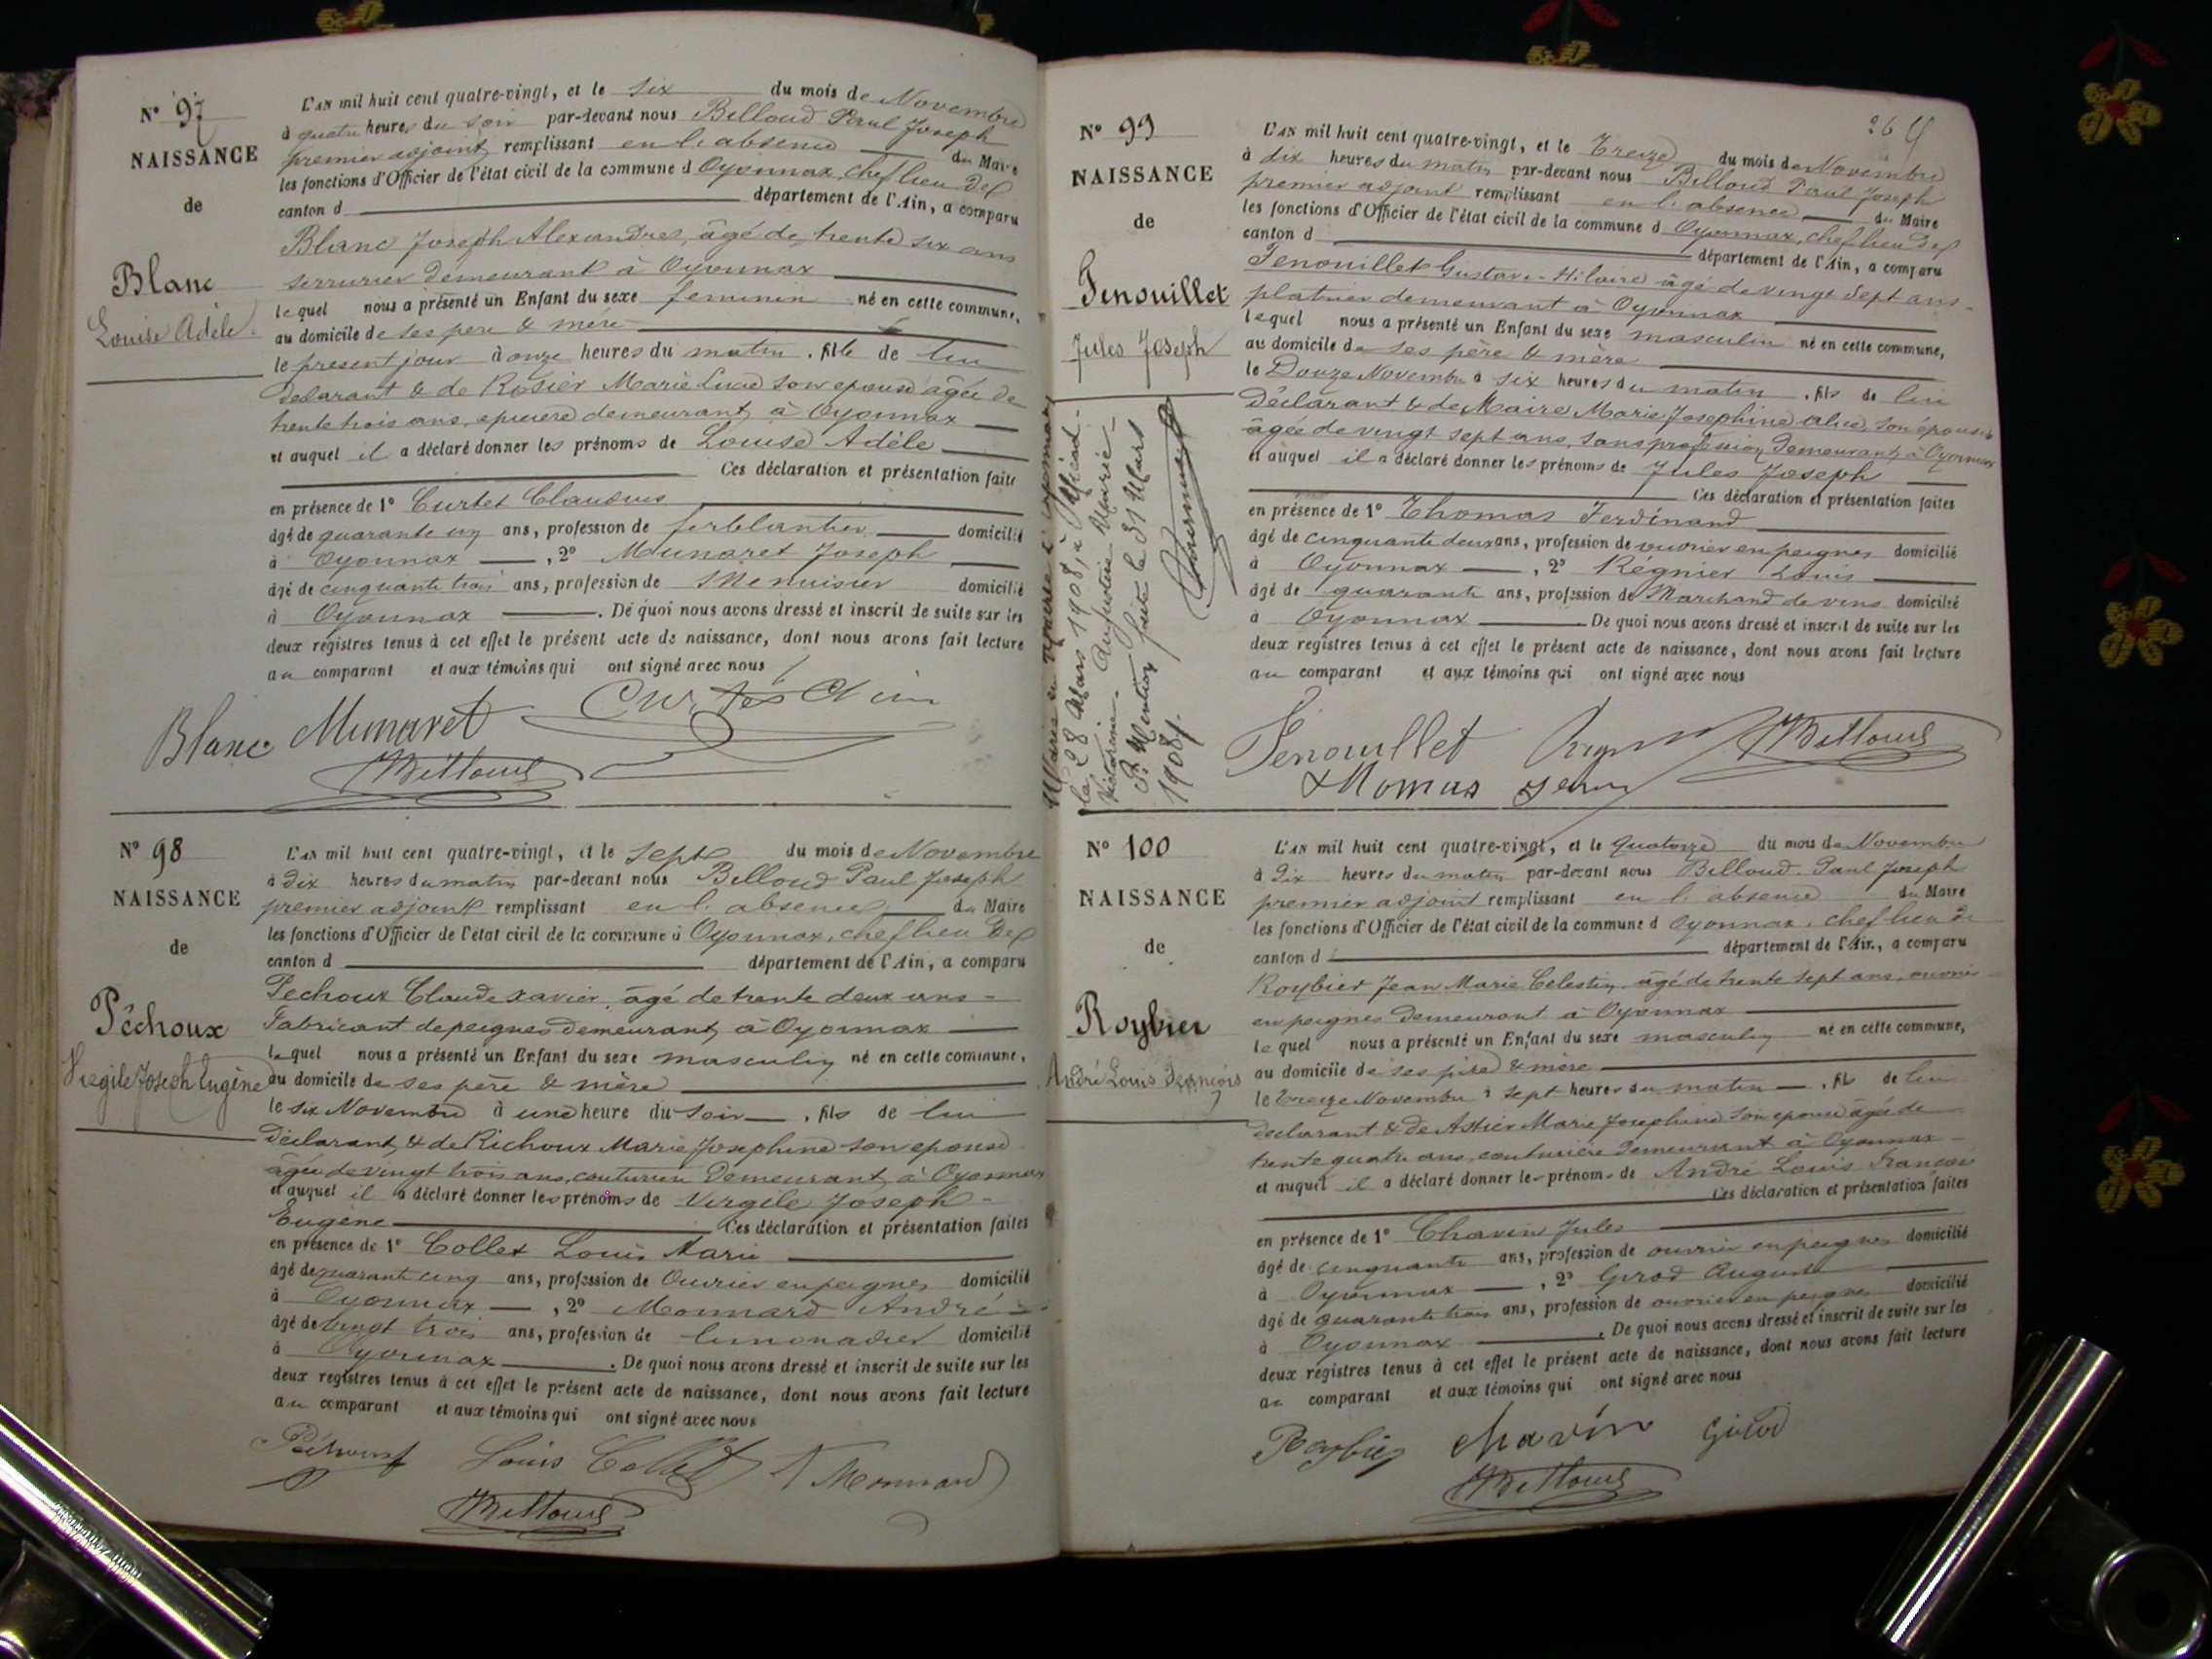 N° 97
NAISSANCE
de
Blanc
Louise Adèle.
L'AN mil huit cent quatre-vingt, et le six du mois de Novembre
à quatre heures du soir par-devant nous Billoud Paul Joseph
premier adjoint remplissant en l'absence du Maire
les fonctions d'Officier de l'état civil de la commune d Oyonnax, chef lieu de
canton d département de l'Ain, a comparu
Blanc Joseph Alexandre, âgé de trente six ans
serrurier demeurant à Oyonnax
lequel nous a présenté un Enfant du sexe feminin né en cette commune,
au domicile de ses père & mère
le present jour à onze heures du matin, fille de lui
déclarant & de Rosier Marie Lucie son epouse âgée de
trente trois ans, epiciere demeurant à Oyonnax
et auquel il a déclaré donner les prénoms de Louise Adèle
Ces déclaration et présentation faite
en présence de 1° Curtet Claudius
âgé de quarante un ans, profession de ferblantier domicilié
à Oyonnax , 2° Munaret Joseph
âgé de cinquante trois ans, profession de Menuisier domicilié
à Oyonnax . De quoi nous avons dressé et inscrit de suite sur les
deux registres tenus à cet effet le présent acte de naissance, dont nous avons fait lecture
au comparant et aux témoins qui ont signé avec nous
Blanc Munaret
PBilloud
N° 98
NAISSANCE
de
Péchoux
Virgile Joseph Eugène
L'AN mil huit cent quatre-vingt, et le sept du mois de Novembre
à dix heures du matin par-devant nous Billoud Paul Joseph
premier adjoint remplissant en l'absence du Maire
les fonctions d'Officier de l'état civil de la commune d Oyonnax, chef lieu de
canton d département de l'Ain, a comparu
Péchoux Claude Xavier, âgé de trente deux ans
Fabricant de peignes demeurant à Oyonnax
lequel nous a présenté un Enfant du sexe masculin né en cette commune,
au domicile de ses père & mère
le six Novembre à une heure du soir , fils de lui
déclarant & de Richoux Marie Josephine son epouse
âgée de vingt trois ans, couturière demeurant à Oyonnax
et auquel il a déclaré donner les prénoms de Virgile Joseph
Eugène Ces déclaration et présentation faites
en présence de 1° Collet Louis Marie
âgé de quarante cinq ans, profession de Ouvrier en peignes domicilié
à Oyonnax , 2° Monnard André
âgé de vingt trois ans, profession de limonadier domicilié
à Oyonnax . De quoi nous avons dressé et inscrit de suite sur les
deux registres tenus à cet effet le présent acte de naissance, dont nous avons fait lecture
au comparant et aux témoins qui ont signé avec nous
Péchoux Louis Collet A Monnard
PBilloud
N° 99
NAISSANCE
de
Fenouillet
Jules Joseph
le 28 Mars 1908, à
Victorine Augustine Marie
P. Mention faite le 31 Mars
1908.
L'AN mil huit cent quatre-vingt, et le Treize du mois de Novembre
à dix heures du matin par-devant nous Billoud Paul Joseph
premier adjoint remplissant en l'absence du Maire
les fonctions d'Officier de l'état civil de la commune d Oyonnax, chef lieu de
canton d département de l'Ain, a comparu
Fenouillet Gustave Hilaire âgé de vingt sept ans
platrier demeurant à Oyonnax
lequel nous a présenté un Enfant du sexe masculin né en cette commune,
au domicile de ses père & mère
le Douze Novembre à six heures du matin , fils de lui
déclarant & de Maire Marie Josephine Alice, son épouse
âgée de vingt sept ans, sans profession, demeurant à Oyonnax
et auquel il a déclaré donner les prénoms de Jules Joseph
Ces déclaration et présentation faites
en présence de 1° Thomas Ferdinand
âgé de cinquante deux ans, profession de ouvrier en peignes domicilié
à Oyonnax , 2° Régnier Louis
âgé de quarante ans, profession de Marchand de vins domicilié
à Oyonnax De quoi nous avons dressé et inscrit de suite sur les
deux registres tenus à cet effet le présent acte de naissance, dont nous avons fait lecture
au comparant et aux témoins qui ont signé avec nous
Fenouillet PBilloud
Thomas
N° 100
NAISSANCE
de
Roybier
André Louis François
L'AN mil huit cent quatre-vingt, et le quatorze du mois de Novembre
à dix heures du matin par-devant nous Billoud Paul Joseph
premier adjoint remplissant en l'absence du Maire
les fonctions d'Officier de l'état civil de la commune d Oyonnax, chef lieu de
canton d département de l'Ain, a comparu
Roybier Jean Marie Celestin, âgé de trente sept ans, ouvrier
en peignes demeurant à Oyonnax
lequel nous a présenté un Enfant du sexe masculin né en cette commune,
au domicile de ses père & mère
le treize Novembre à sept heures du matin , fils de lui
déclarant & de Astier Marie Josephine son epouse âgée de
trente quatre ans, couturière demeurant à Oyonnax
et auquel il a déclaré donner les prénoms de André Louis François
Ces déclaration et présentation faites
en présence de 1° Chavin Jules
âgé de cinquante ans, profession de ouvrier en peignes domicilié
à Oyonnax , 2° Girod Auguste
âgé de quarante trois ans, profession de ouvrier en peignes domicilié
à Oyonnax . De quoi nous avons dressé et inscrit de suite sur les
deux registres tenus à cet effet le présent acte de naissance, dont nous avons fait lecture
au comparant et aux témoins qui ont signé avec nous
Roybier Chavin Girod
PBilloud